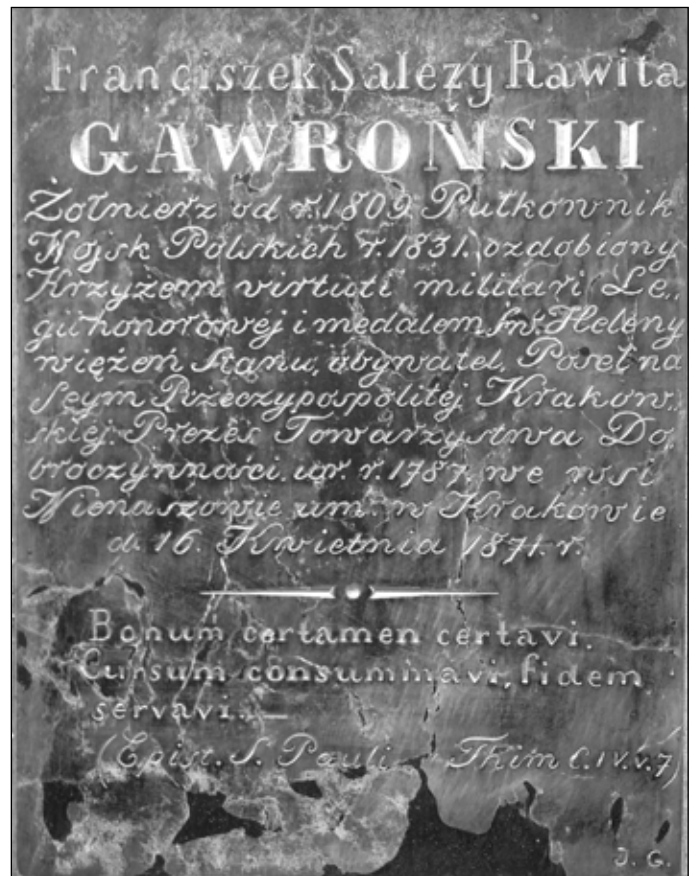 Franciszek Salezy Rawita
GAWROŃSKI
Żołnierz od r. 1809. Pułkownik
Wojsk Polskich r. 1831. ozdobiony
Krzyżem virtuti militari Le„
gii honorowéj i medalem św. Heleny
więzeń Stanu, obywatel, Poseł na
Seym Rzeczypospolitéj Krakow„
skiéj. Prezes Towarzystwa Do„
broczynności. ur. r. 1787. we wsi
Nienaszowie um. w Krakowie
d. 16. Kwietnia 1871. r.
Bonum certamen certavi.
Cursum consummavi, fidem
servavi. —
(Epist. S. Pauli Thim C. IV. v. 7)
J. G.